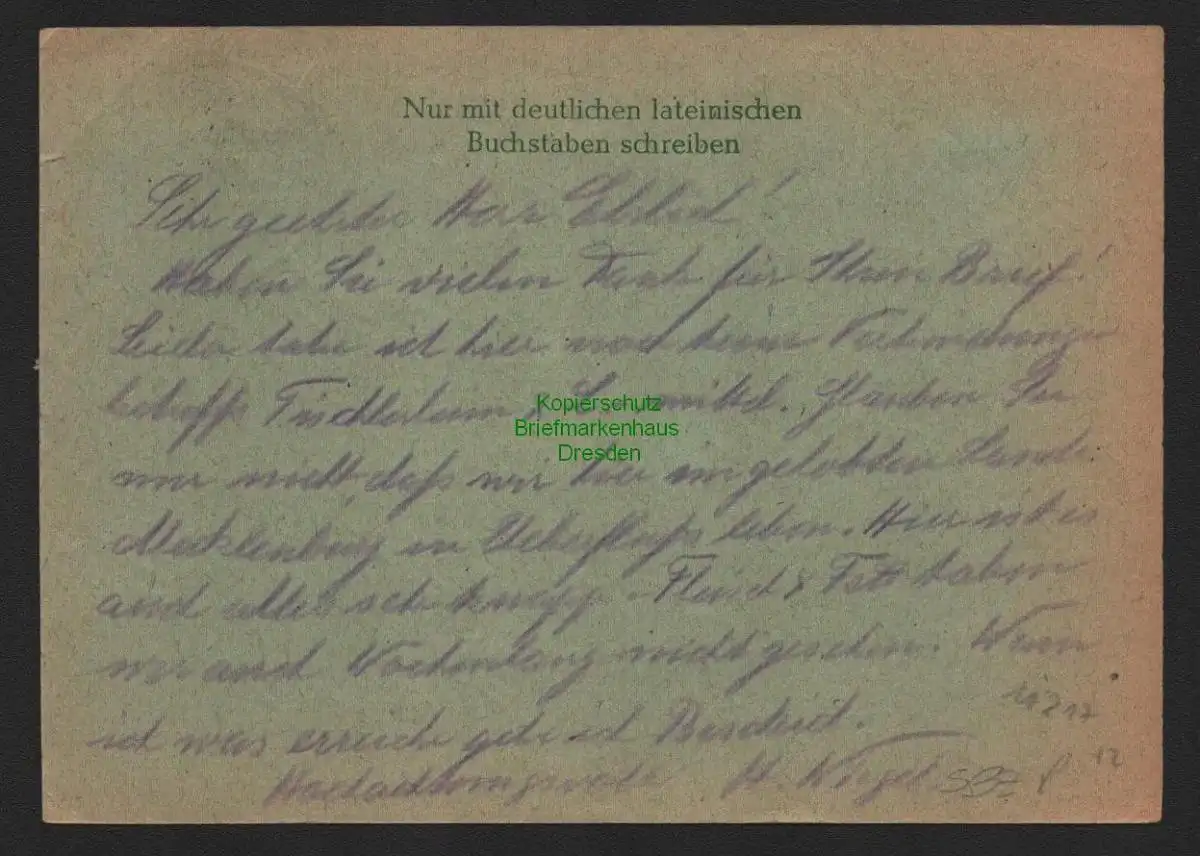 Nur mit deutlichen lateinischen
Buchstaben schreiben
Sehr geehrter Herr
Haben Sie vielen Dank für Ihren Brief!
Leider habe ich hier noch keine
betreffs Tischlerleim, Glauben Sie
nur nicht, daß wir hier im gelobten Lande
Mecklenburg in Ueberfluß leben. Hier ist es
auch alles sehr knapp. Fleisch & Fett haben
wir auch Wochenlang nicht gesehen. Wenn
ich was erreiche gebe ich Bescheid.
Hochachtungsvoll H.
Kopierschutz
Briefmarkenhaus
Dresden
12